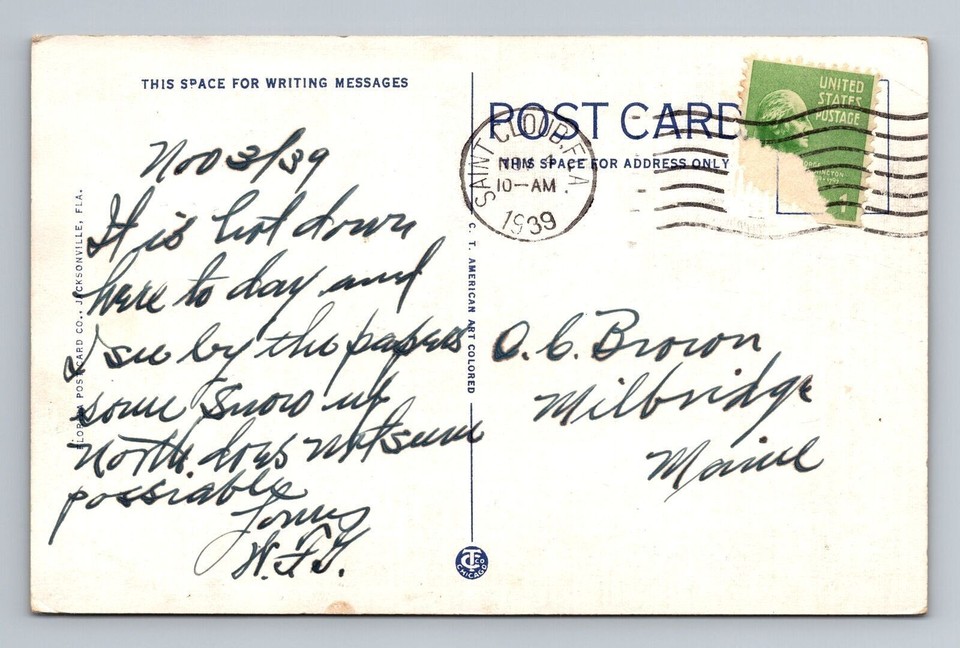 THIS SPACE FOR WRITING MESSAGES
Nov 3/39
It is hot down
here to day and
I see by the papers
some snow up
North. does not seem
possiable
W.F.G.
FLORIDA POST CARD CO., JACKSONVILLE, FLA.
C. T. AMERICAN ART COLORED
CTCO
CHICAGO
POST CARD
THIS SPACE FOR ADDRESS ONLY
SAINT CLOUD, FLA.
NOV
10—AM
1939
UNITED
STATES
POSTAGE
1
O. C. Brown
Milbridge
Maine